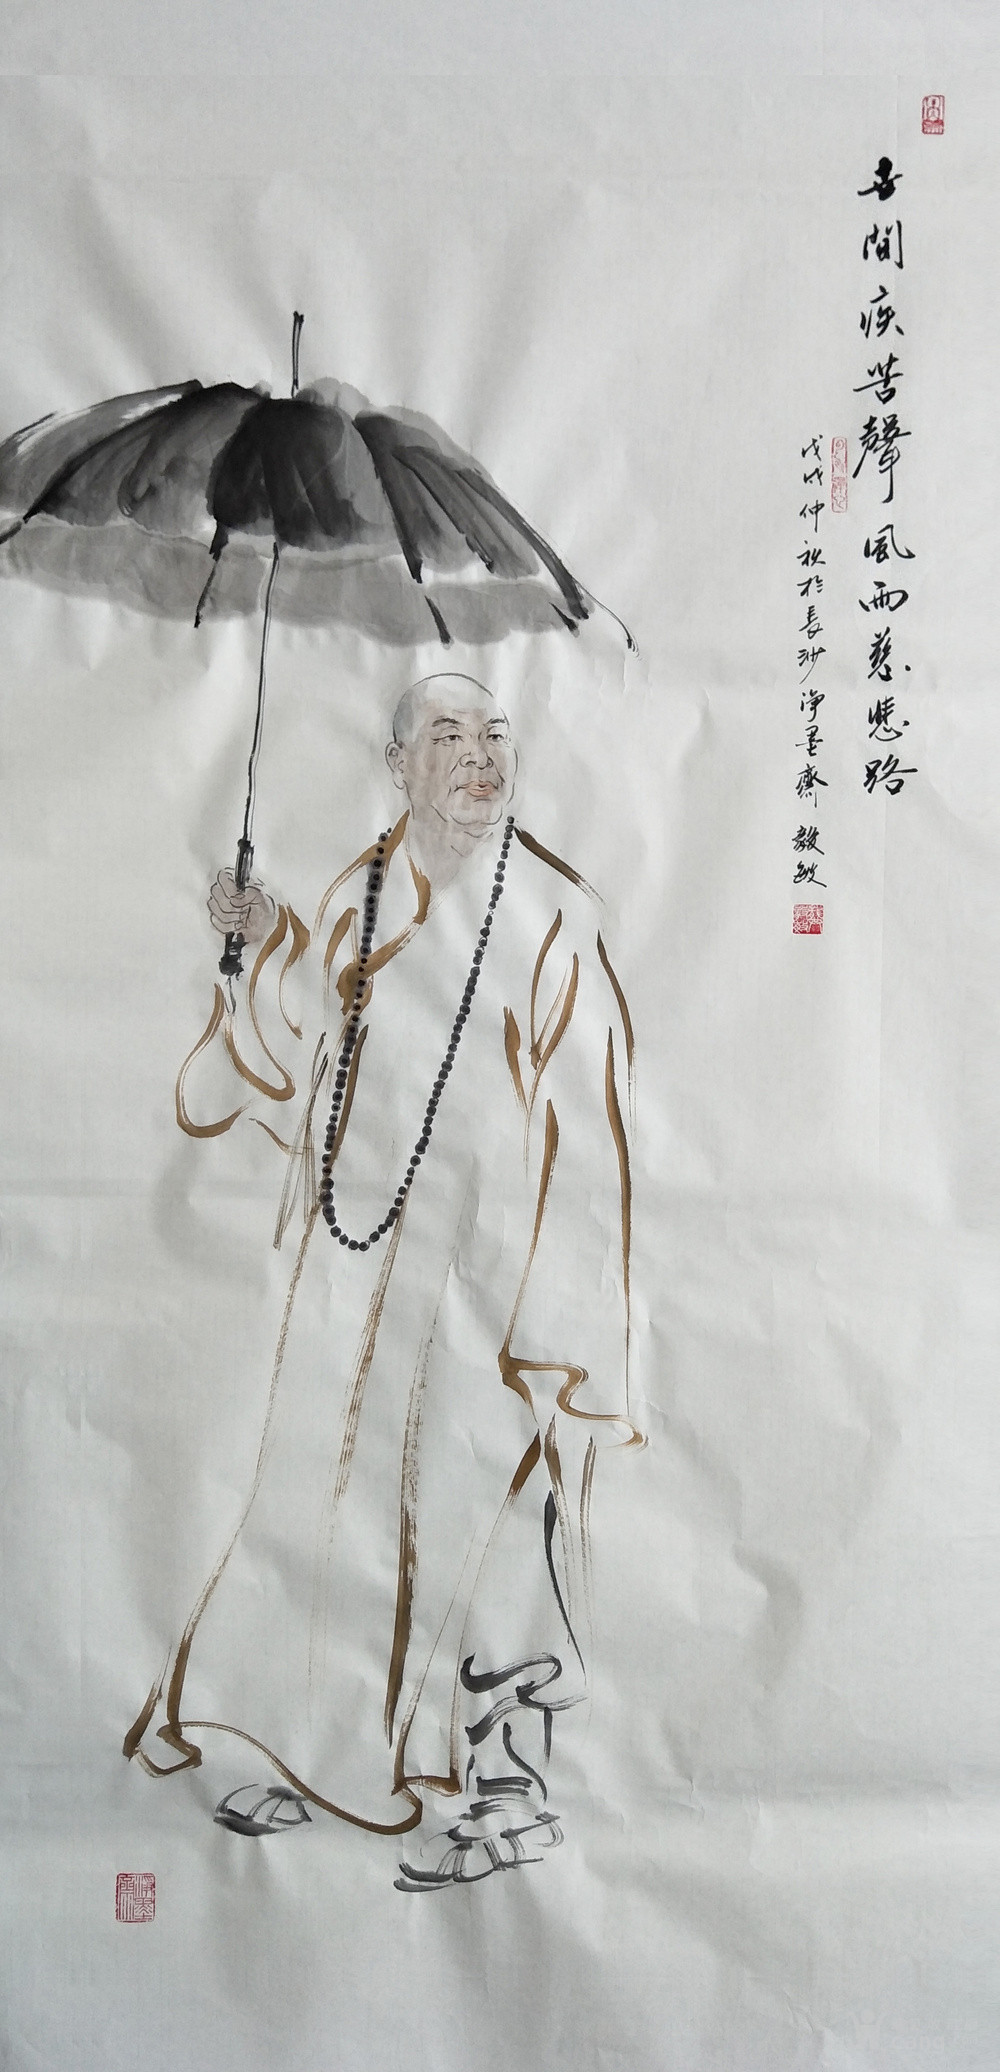 世間疾苦聲風雨慈悲路
戊戌仲秋於長沙淨墨齋 毅敏